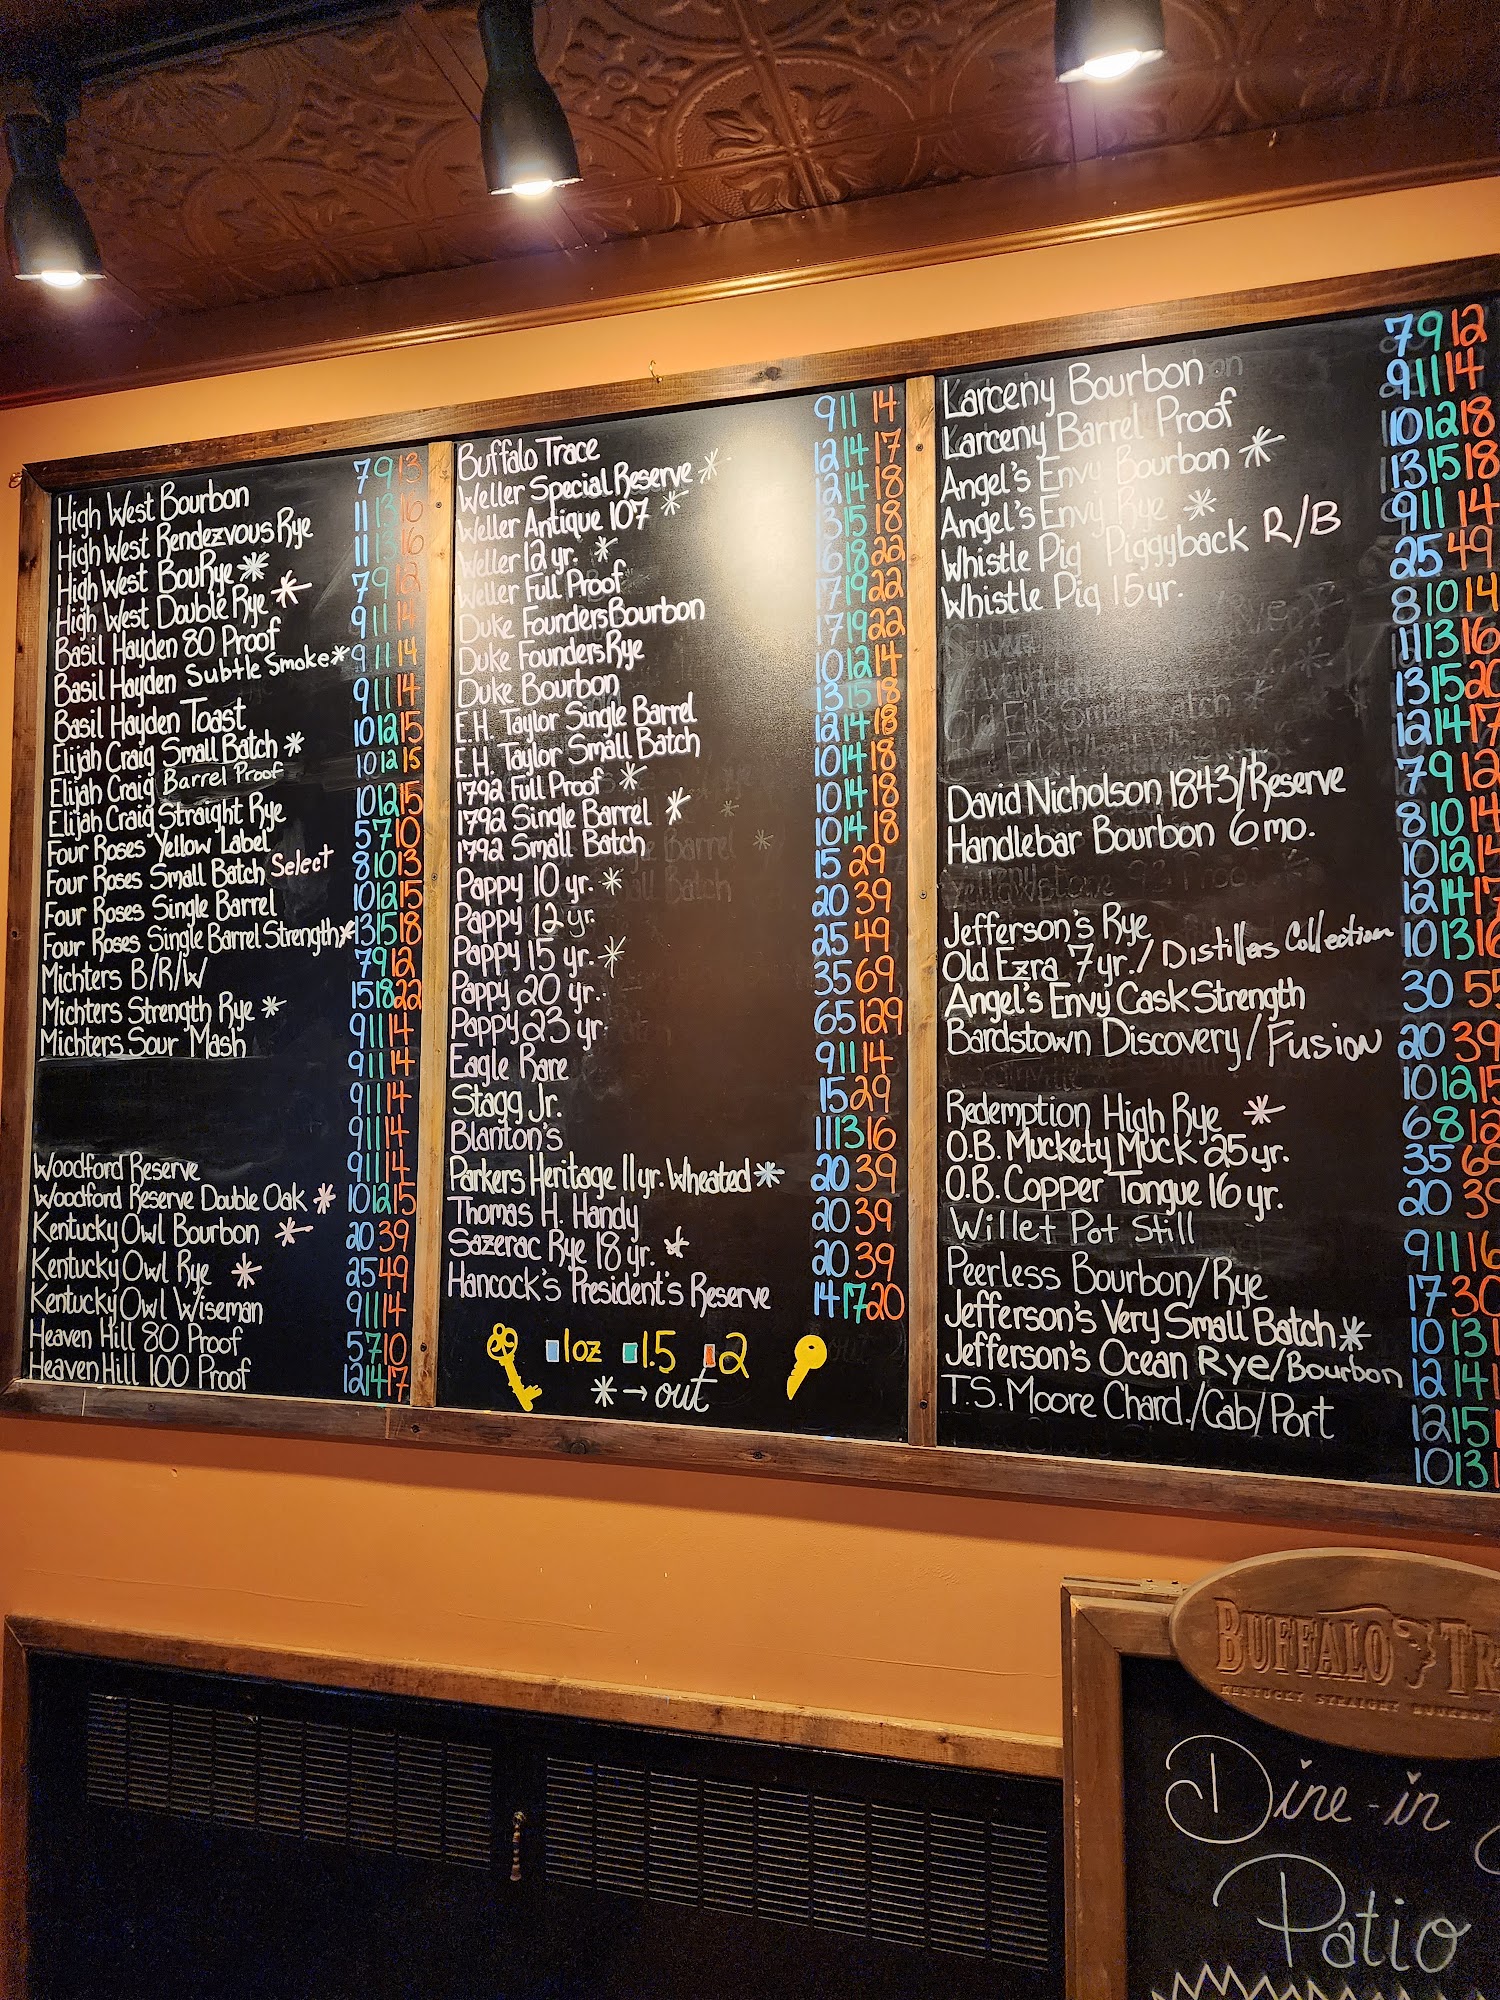 High West Bourbon 7 9 13
High West Rendezvous Rye 11 13 16
High West BouRye * 11 13 16
High West Double Rye * 7 9 12
Basil Hayden 80 Proof 9 11 14
Basil Hayden Subtle Smoke * 9 11 14
Basil Hayden Toast 9 11 14
Elijah Craig Small Batch * 10 12 15
Elijah Craig Barrel Proof 10 12 15
Elijah Craig Straight Rye 10 12 15
Four Roses Yellow Label 5 7 10
Four Roses Small Batch Select 8 10 13
Four Roses Single Barrel 10 12 15
Four Roses Single Barrel Strength * 13 15 18
Michters B/R/W 7 9 12
Michters Strength Rye * 15 18 22
Michters Sour Mash 9 11 14
9 11 14
9 11 14
9 11 14
Woodford Reserve 9 11 14
Woodford Reserve Double Oak * 10 12 15
Kentucky Owl Bourbon * 20 39
Kentucky Owl Rye * 25 49
Kentucky Owl Wiseman 9 11 14
Heaven Hill 80 Proof 5 7 10
Heaven Hill 100 Proof 12 14 17
Buffalo Trace 9 11 14
Weller Special Reserve * 12 14 17
Weller Antique 107 * 12 14 18
Weller 12 yr. * 13 15 18
Weller Full Proof 16 18 22
Duke Founders Bourbon 17 19 22
Duke Founders Rye 17 19 22
Duke Bourbon 10 12 14
E.H. Taylor Single Barrel 13 15 18
E.H. Taylor Small Batch 12 14 18
1792 Full Proof * 10 14 18
1792 Single Barrel * 10 14 18
1792 Small Batch 10 14 18
Pappy 10 yr. * 15 29
Pappy 12 yr. 20 39
Pappy 15 yr. * 25 49
Pappy 20 yr. 35 69
Pappy 23 yr. 65 129
Eagle Rare 9 11 14
Stagg Jr. 15 29
Blanton's 11 13 16
Parkers Heritage 11 yr. Wheated * 20 39
Thomas H. Handy 20 39
Sazerac Rye 18 yr. * 20 39
Hancock's President's Reserve 14 17 20
1oz 1.5 2
* → out
Larceny Bourbon 7 9 12
Larceny Barrel Proof 9 11 14
Angel's Envy Bourbon * 10 12 18
Angel's Envy Rye * 13 15 18
Whistle Pig Piggyback R/B 9 11 14
Whistle Pig 15 yr. 25 49
8 10 14
11 13 16
13 15 20
12 14 17
David Nicholson 1843/Reserve 7 9 12
Handlebar Bourbon 6 mo. 8 10 14
10 12 14
Jefferson's Rye 12 14 17
Old Ezra 7 yr./Distillers Collection 10 13 16
Angel's Envy Cask Strength 30 55
Bardstown Discovery/Fusion 20 39
10 12 15
Redemption High Rye * 6 8 12
O.B. Muckety Muck 25 yr. 35 69
O.B. Copper Tongue 16 yr. 20 39
Willet Pot Still 9 11 16
Peerless Bourbon/Rye 17 30
Jefferson's Very Small Batch * 10 13
Jefferson's Ocean Rye/Bourbon 12 14
T.S. Moore Chard./Cab/Port 12 15
10 13
BUFFALO
KENTUCKY STRAIGHT
Dine-in
Patio